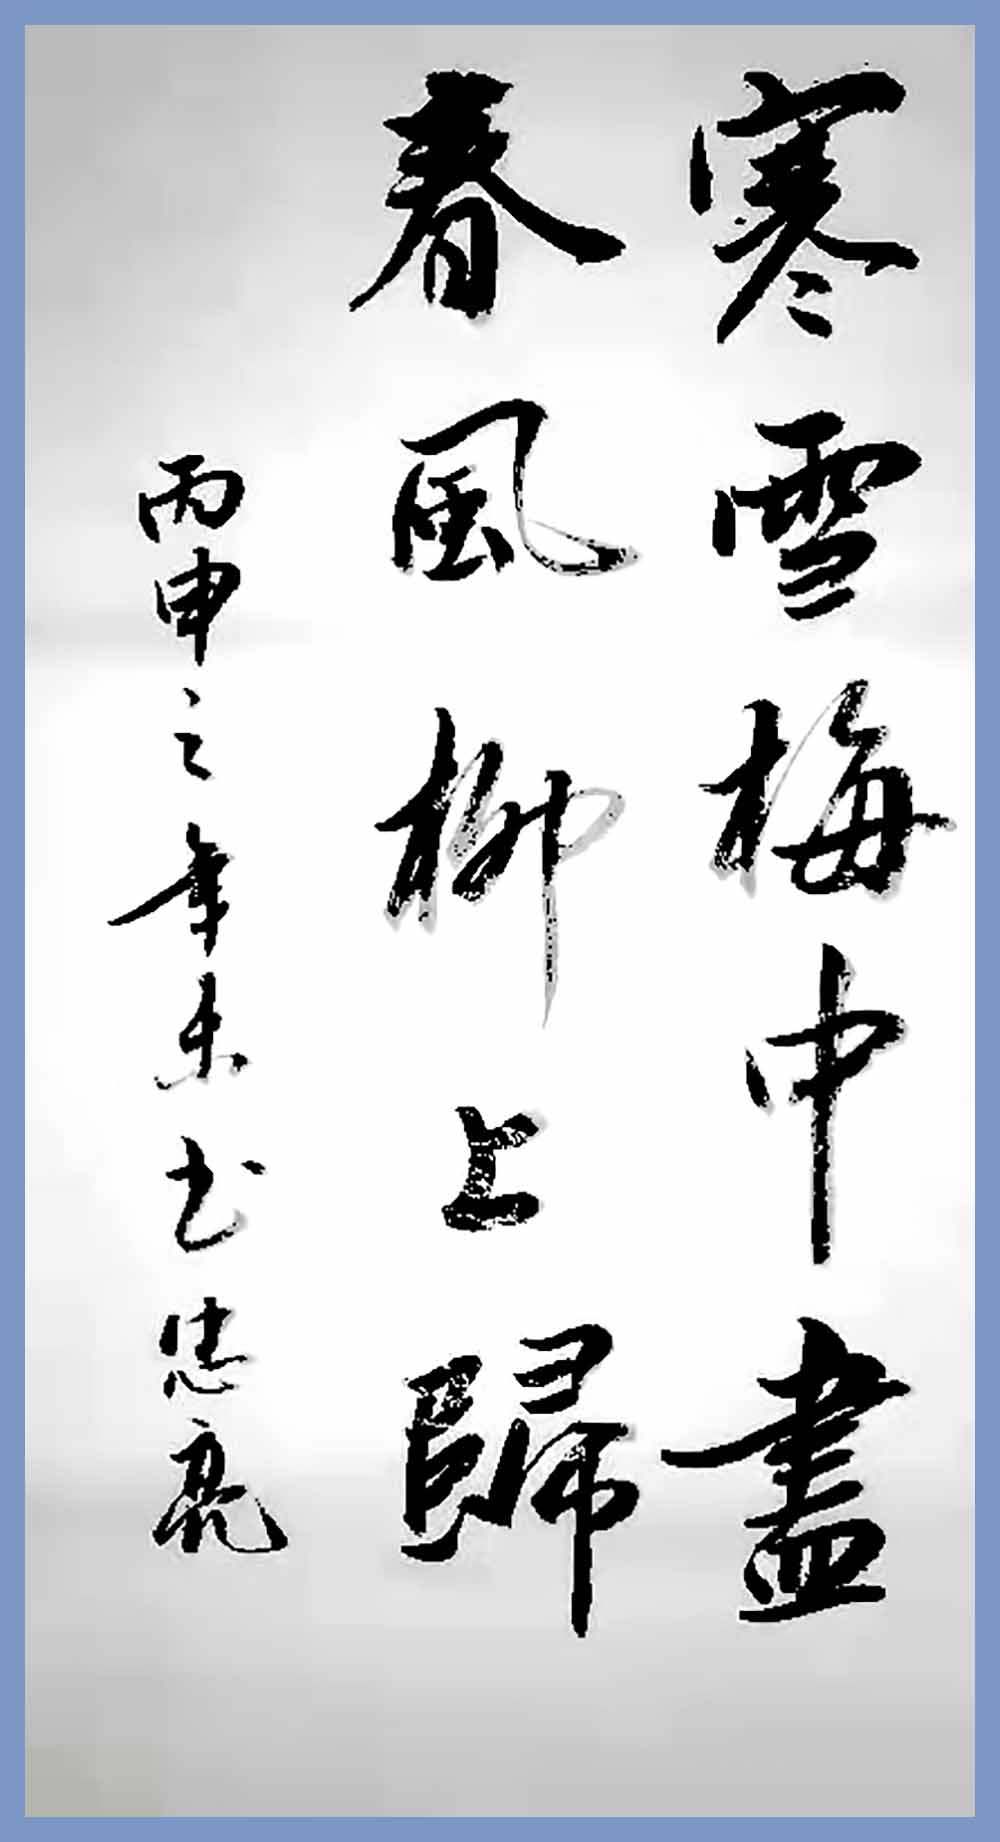 寒雪梅中盡
春風柳上歸
丙申之年末书忠亮